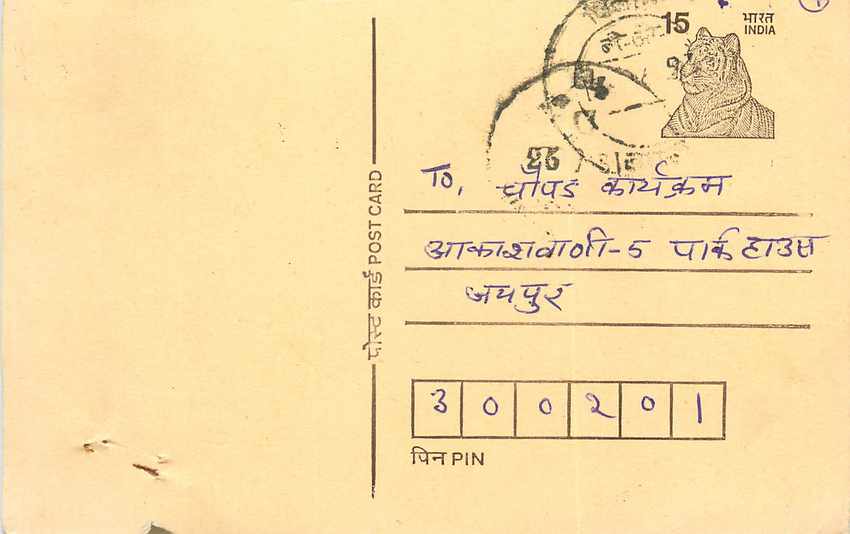 15
भारत
INDIA
पोस्ट कार्ड POST CARD
To, चौपड कार्यक्रम
आकाशवाणी-5 पार्क हाउस
जयपुर
3 0 0 २ 0 1
पिन PIN